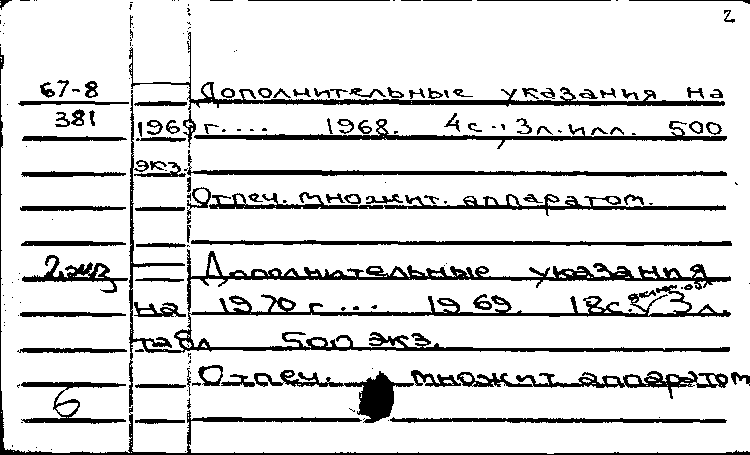 2
67-8 Дополнительные указания на
381 1969 г.... 1968. 4с., 3л. илл. 500
экз.
Отпеч. множит. аппаратом.
2 экз Дополнительные указания
на 1970 г... 1969. 18с. 3 л.
табл 500 экз.
Отпеч. множит аппаратом
6